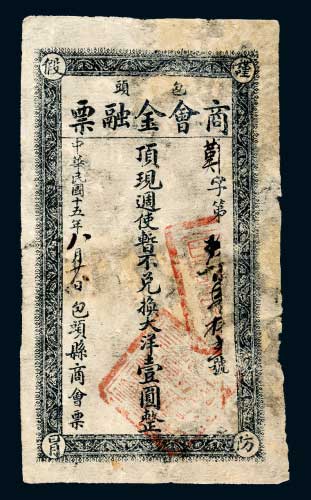 謹防假冒
包頭
商會金融票
字第 號
頂現週使暫不兌換大洋壹圓整
中華民國十五年八月廿 日 包頭縣商會票